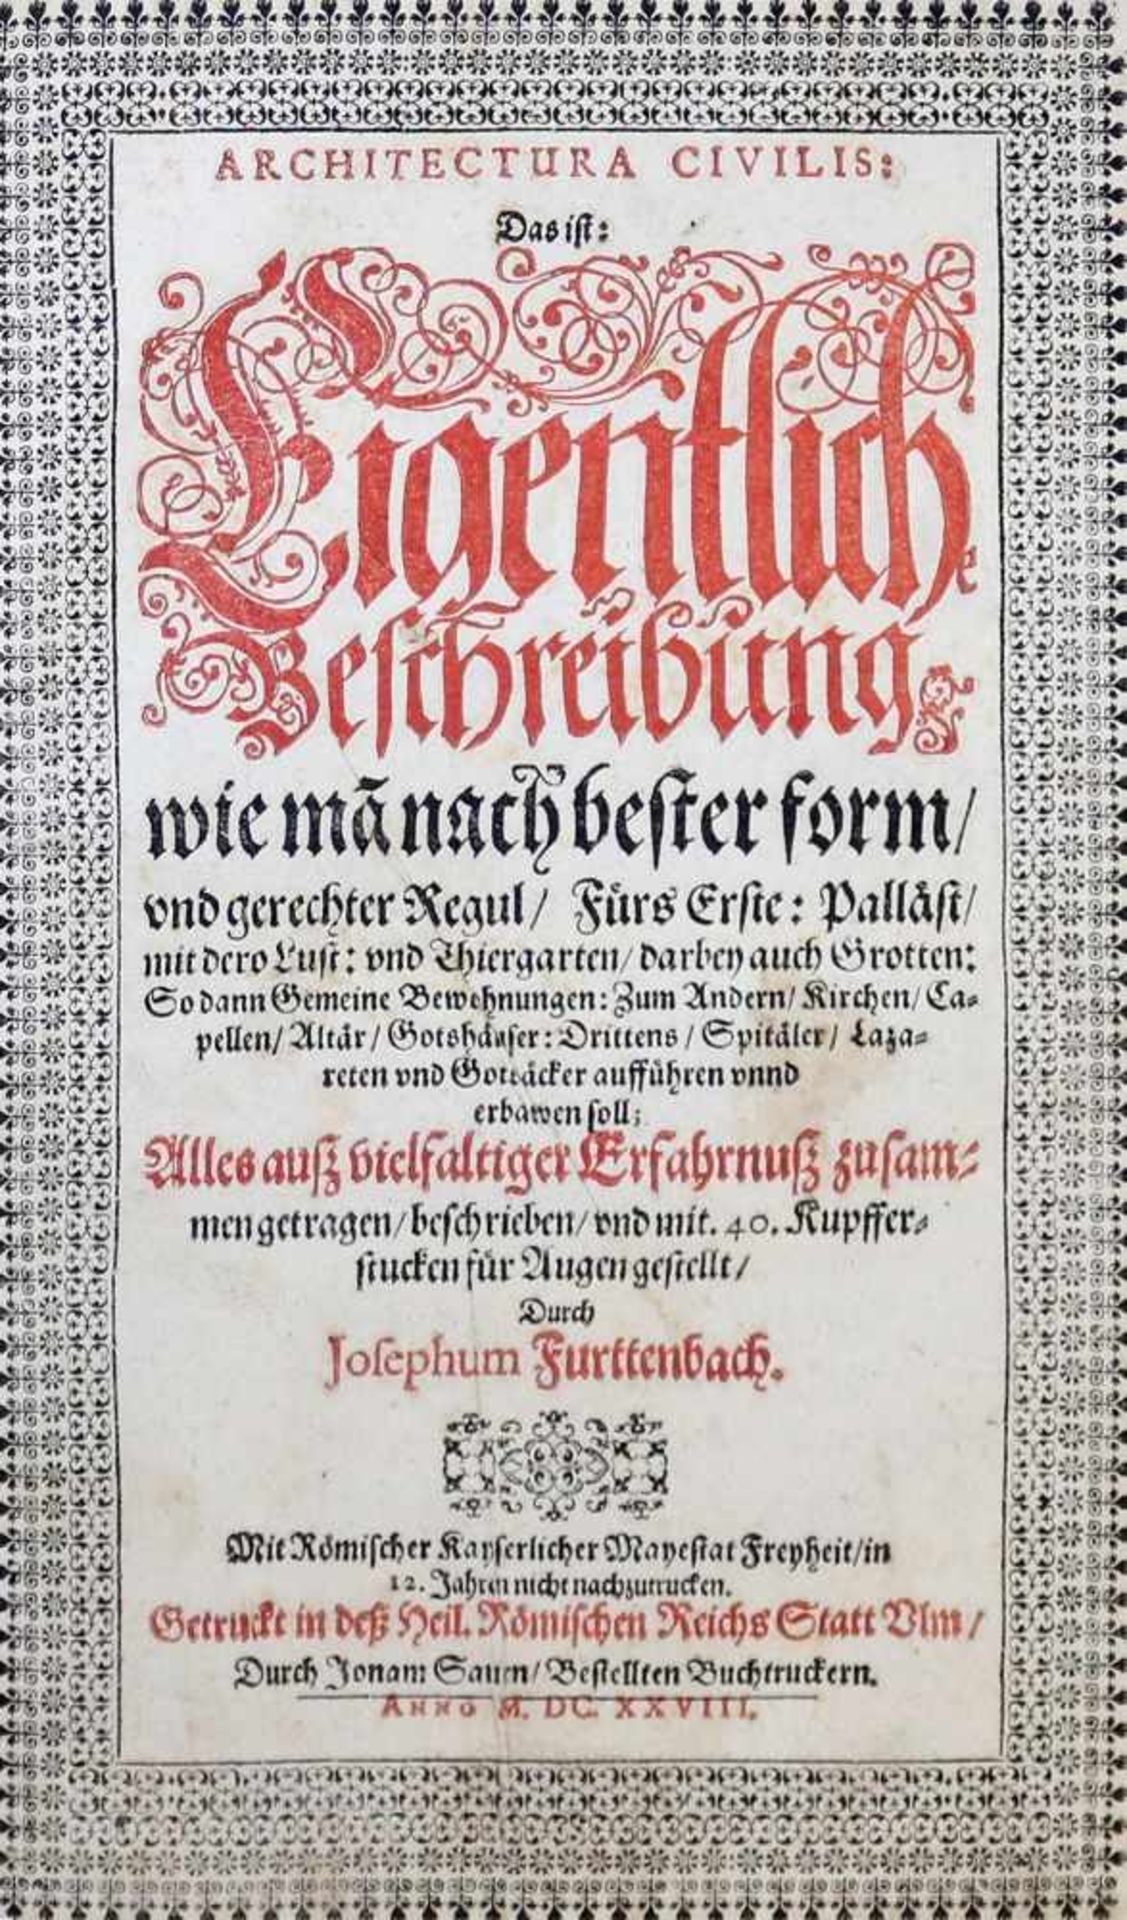 ARCHITECTURA CIVILIS:
Das ist:
Eigentliche
Beschreibung
wie mã nach bester form/
vnd gerechter Regul/ Fürs Erste: Palläst/
mit dero Lust: vnd Thiergarten/ darbey auch Grotten:
So dann Gemeine Bewohnungen: Zum Andern/ Kirchen/ Ca-
pellen/ Altär/ Gotshäuser: Drittens/ Spitäler/ Laza-
reten vnd Gotsäcker aufführen vnnd
erbawen soll;
Alles auß vielfaltiger Erfahrnuß zusam-
men getragen/ beschrieben/ vnd mit. 40. Kupffer-
stucken für Augen gestellt/
Durch
Josephum Furttenbach.
Mit Römischer Kayserlicher Mayestat Freyheit/ in
12. Jahren nicht nachzutrucken.
Getruckt in deß Heil. Römischen Reichs Statt Vlm/
Durch Jonam Saurn/ Bestellten Buchtruckern.
ANNO M. DC. XXVIII.